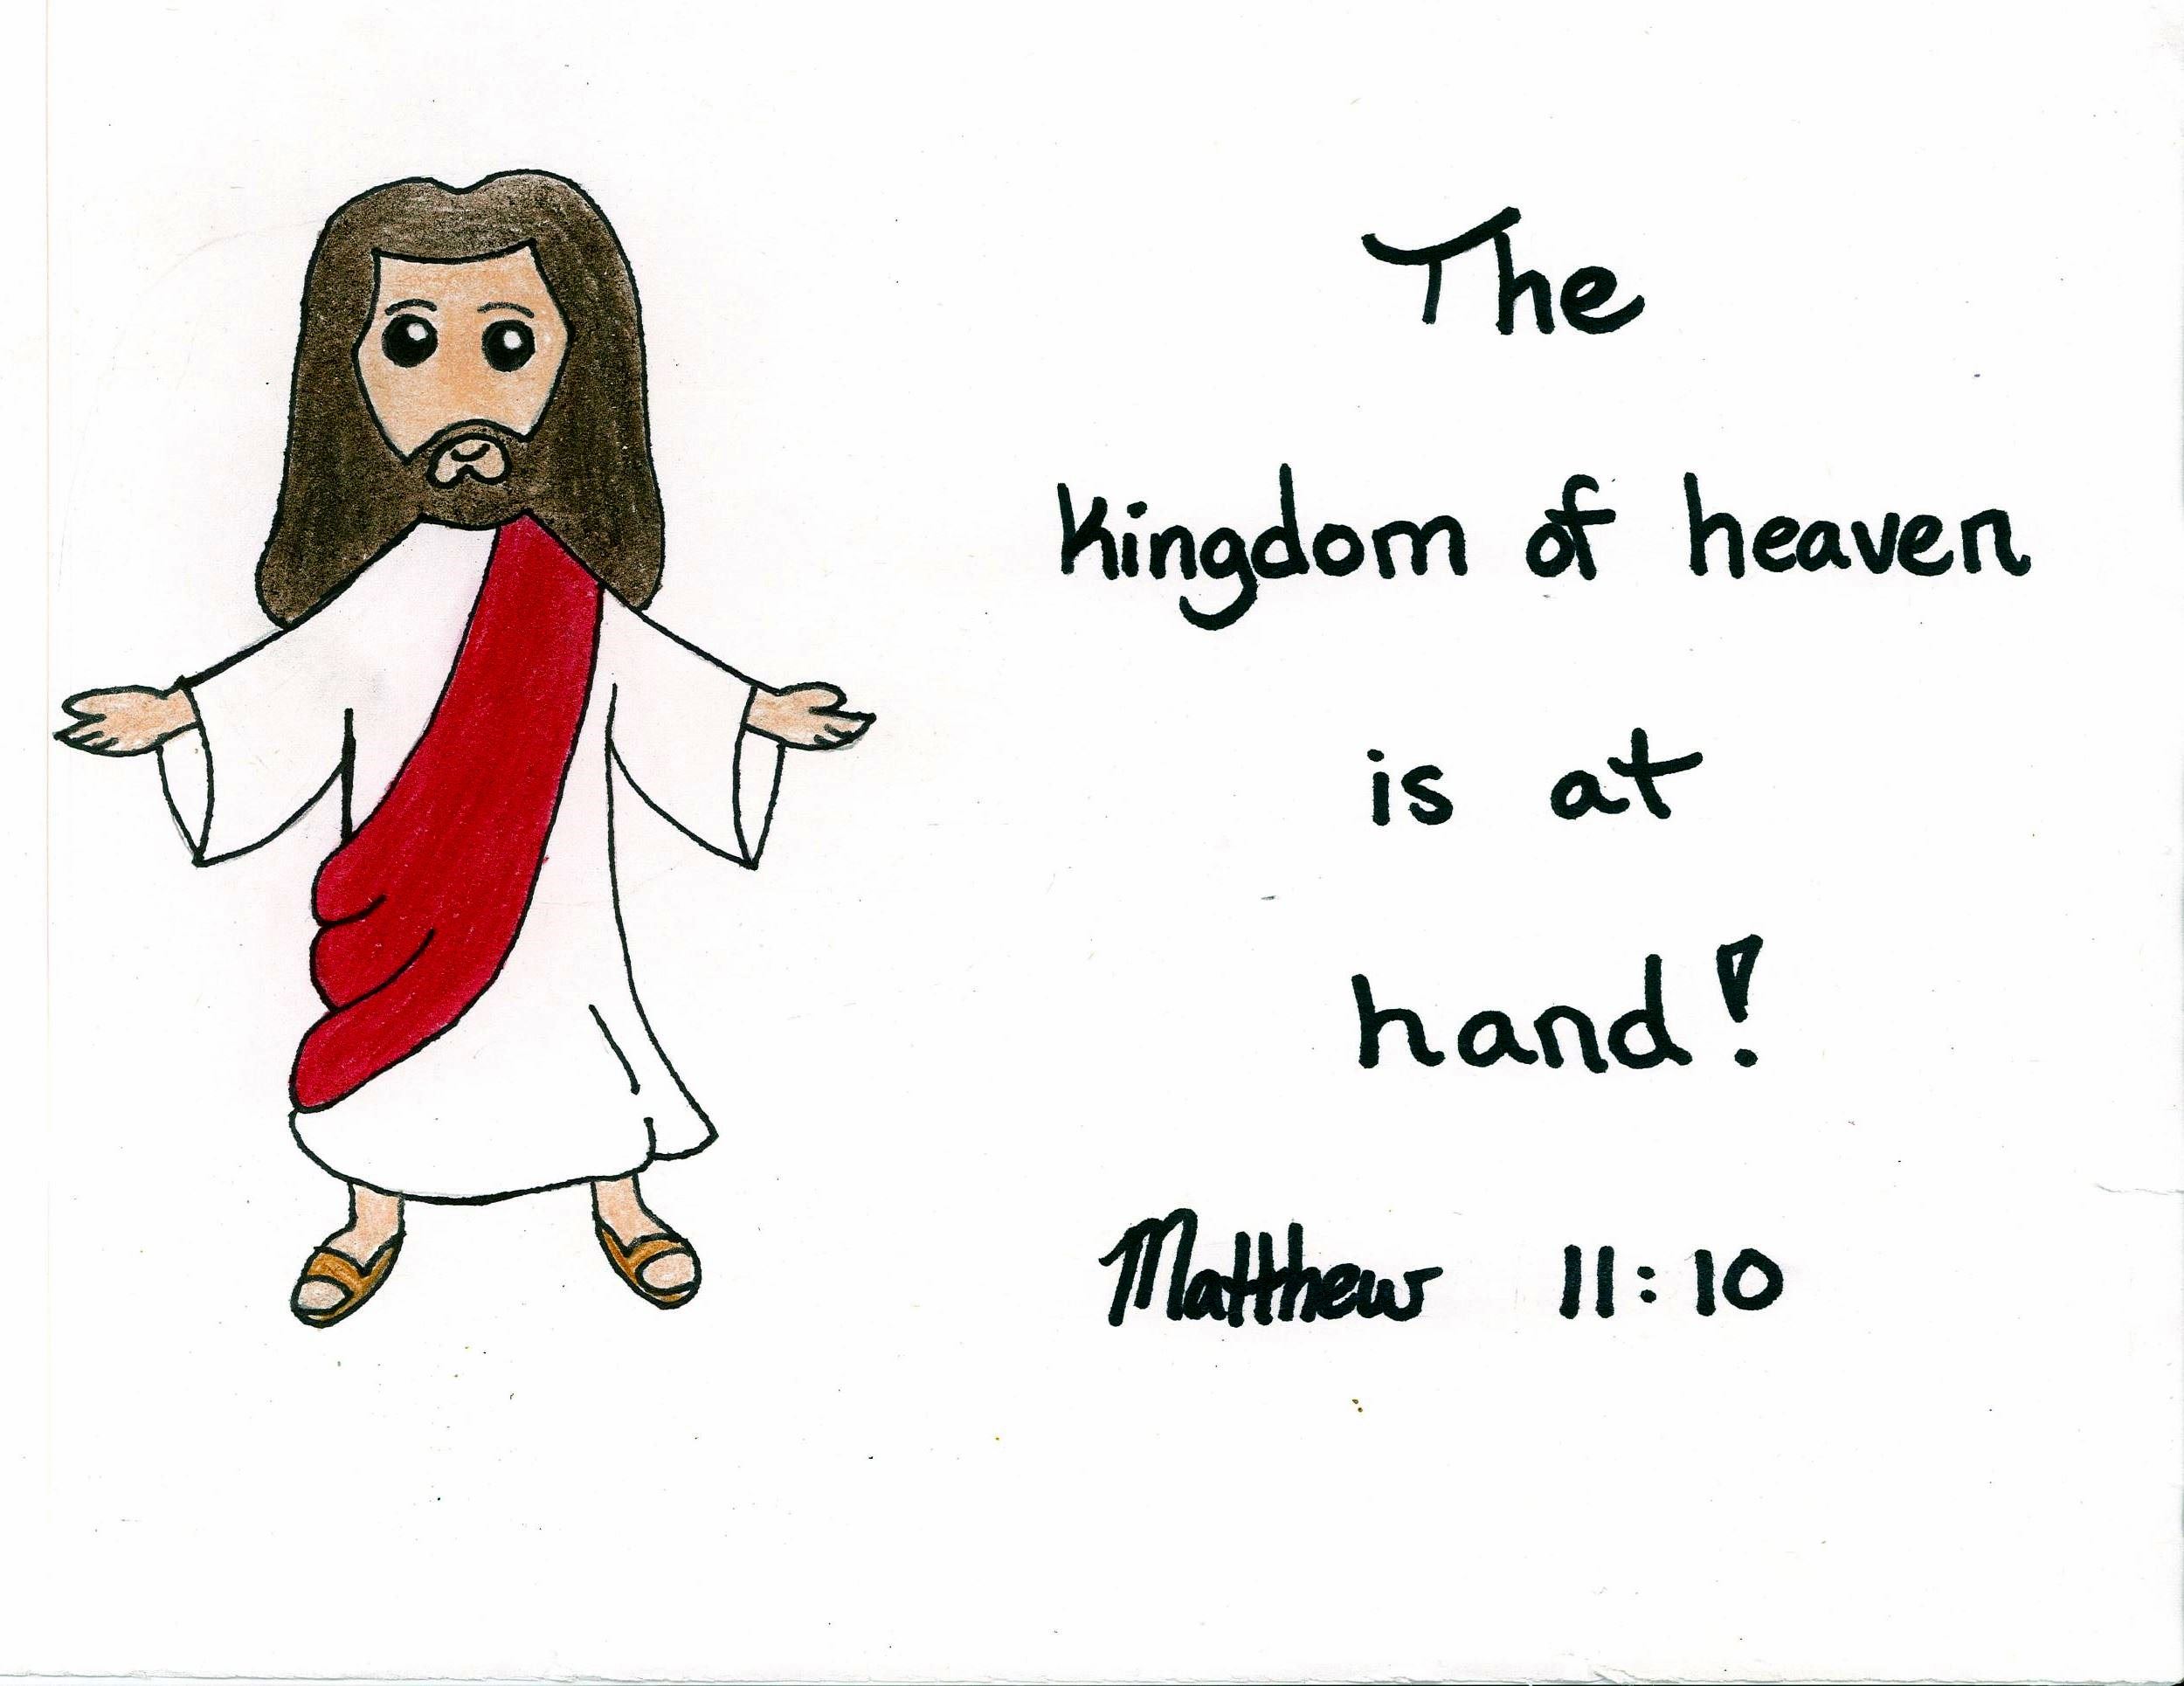 The
Kingdom of heaven
is at
hand!
Matthew 11:10